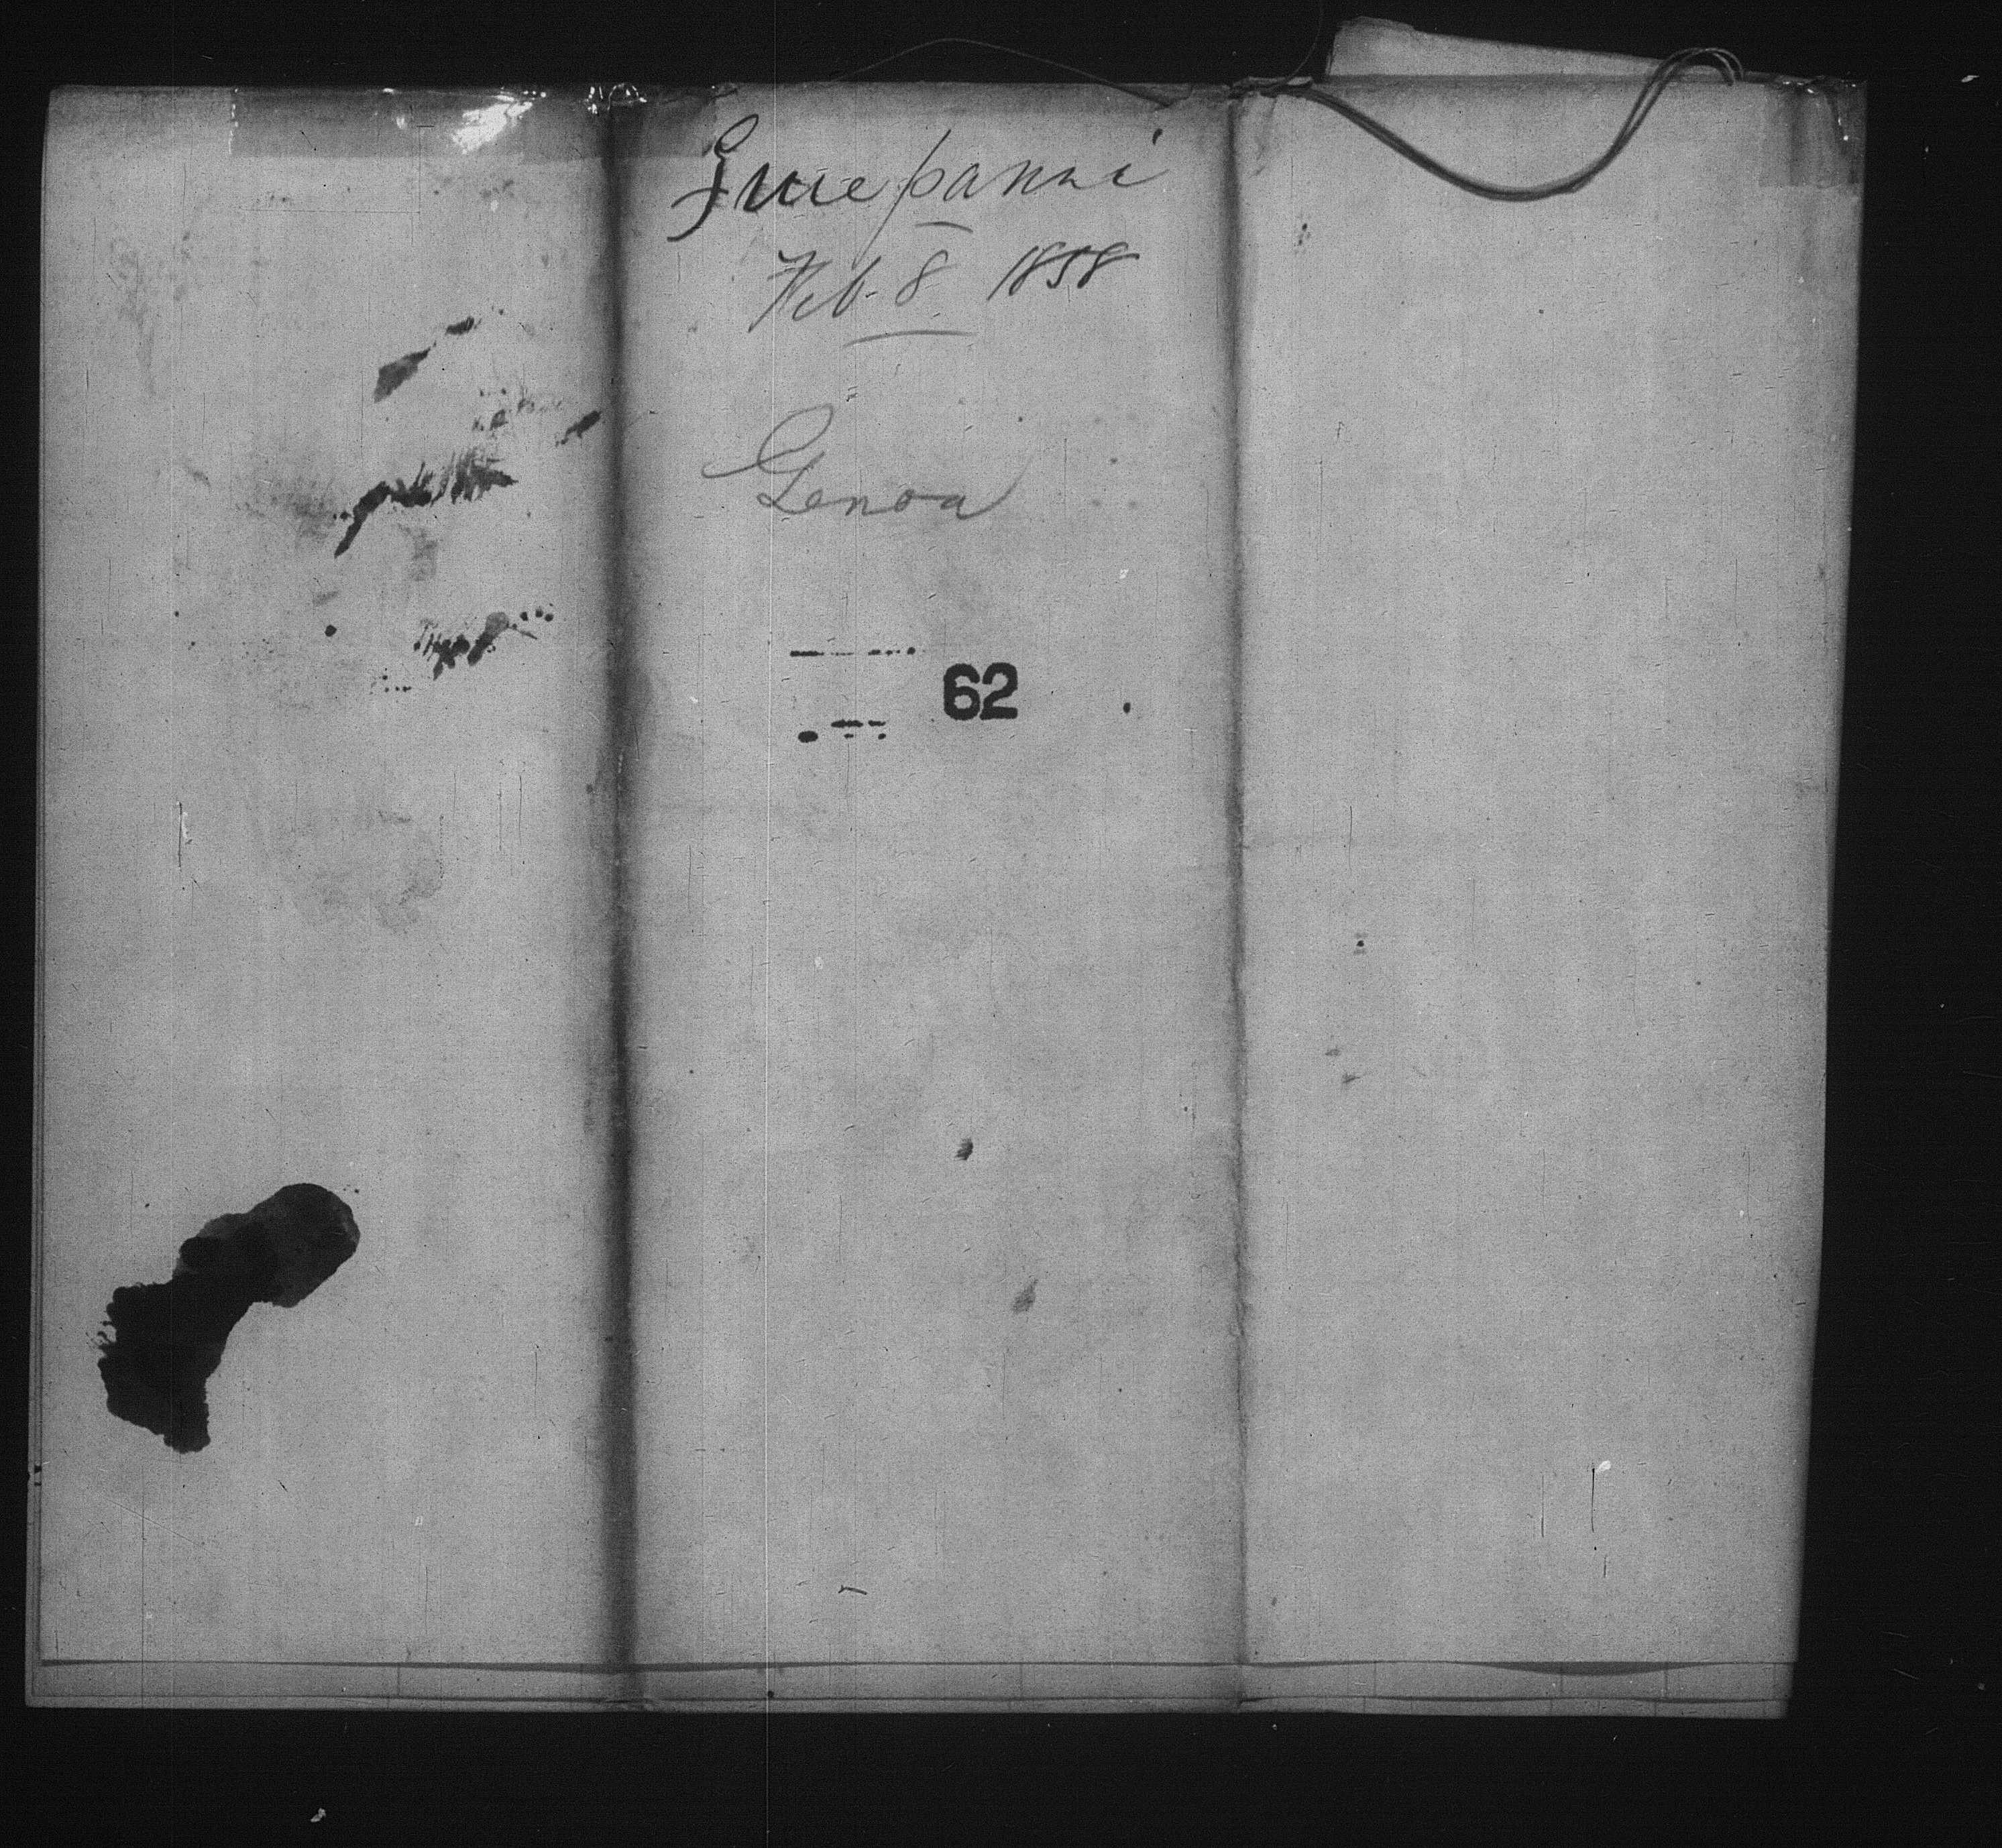 Feb. 8. 1858
Genoa
62